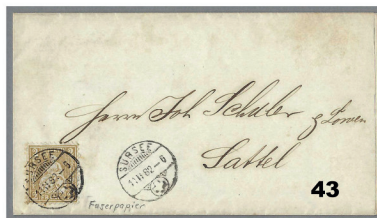 Herrn Joh Schuler z Löwen
Sattel
SURSEE
SURSEE
Faserpapier
43